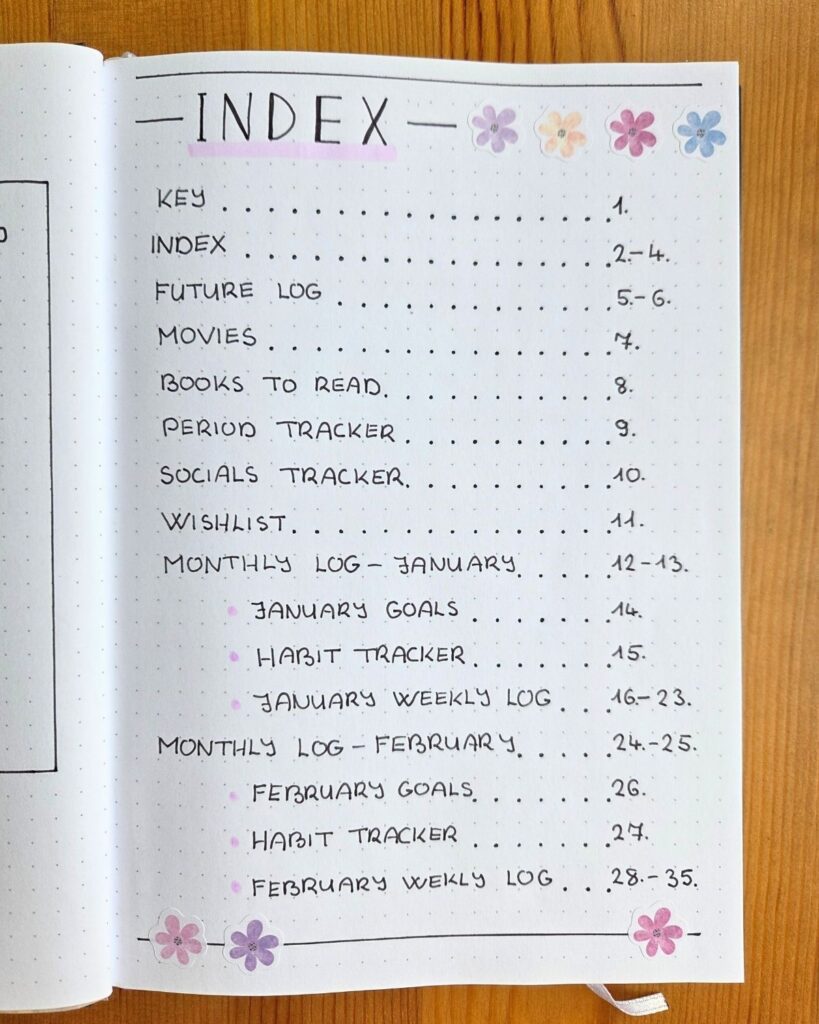 — INDEX —
KEY . . . . . . . . . . . . . . . . . 1.
INDEX . . . . . . . . . . . . . . . . 2.-4.
FUTURE LOG . . . . . . . . . . . . 5.-6.
MOVIES . . . . . . . . . . . . . . . 7.
BOOKS TO READ . . . . . . . . . . 8.
PERIOD TRACKER . . . . . . . . . 9.
SOCIALS TRACKER . . . . . . . . . 10.
WISHLIST . . . . . . . . . . . . . . 11.
MONTHLY LOG - JANUARY . . . . 12-13.
• JANUARY GOALS . . . . . . . 14.
• HABIT TRACKER . . . . . . . 15.
• JANUARY WEEKLY LOG . . . 16.-23.
MONTHLY LOG - FEBRUARY . . . . 24.-25.
• FEBRUARY GOALS . . . . . . 26.
• HABIT TRACKER . . . . . . . 27.
• FEBRUARY WEKLY LOG . . . 28.-35.